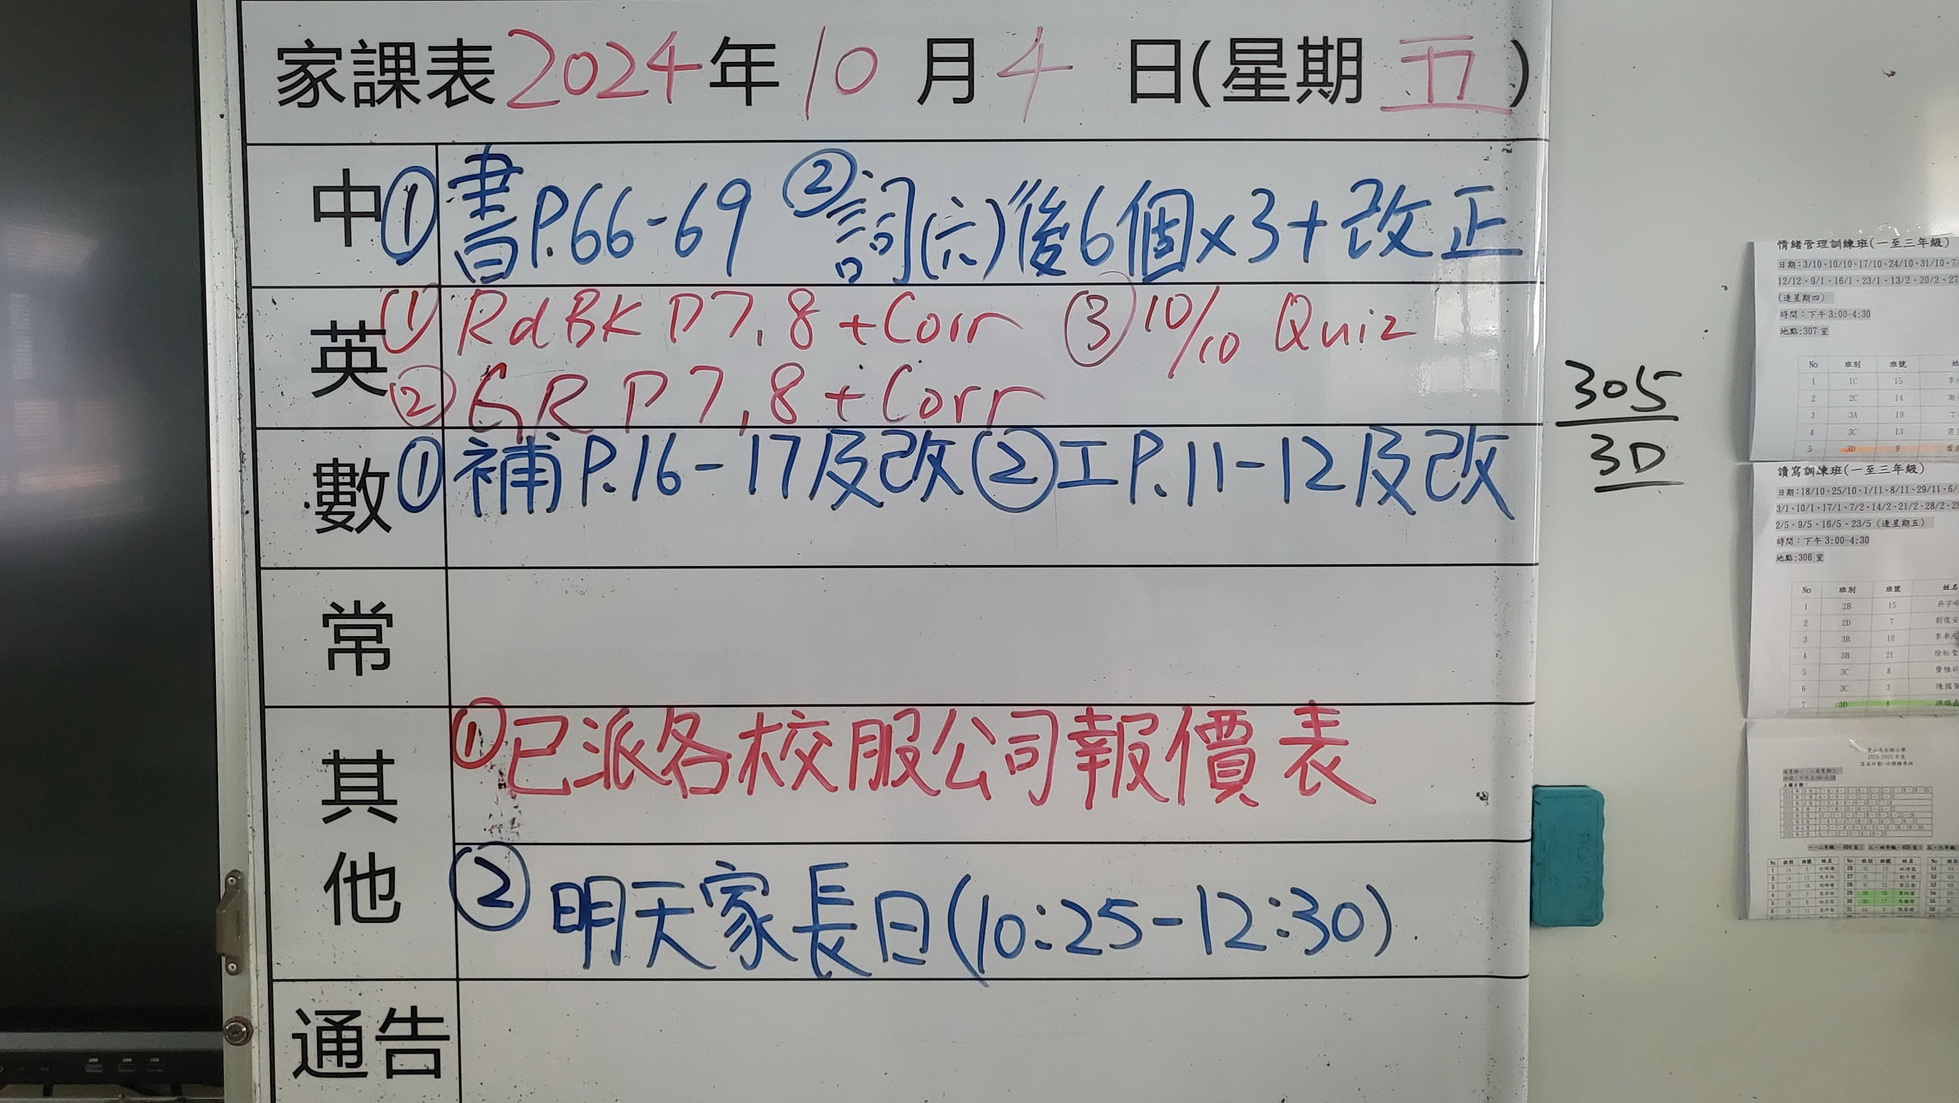 家課表 2024年 10月 4日(星期五)
中 ①書P.66-69 ②詞(六)後6個x3+改正
英 ① Rd BK P7,8 + Corr ③ 10/10 Quiz
② GR P7,8 + Corr
數 ①補P.16-17及改②工P.11-12及改
常
其他 ①已派各校服公司報價表
②明天家長日(10:25-12:30)
通告
305
3D
情緒管理訓練班(一至三年級)
日期:3/10、10/10、17/10、24/10、31/10、7/
12/12、9/1、16/1、23/1、13/2、20/2、27
(逢星期四)
時間:下午3:00-4:30
地點:307室
No 班別 班號 姓
1 1C 15
2 2C 14
3 3A 19
4 3C 13
5 3D 9
讀寫訓練班(一至三年級)
日期:18/10、25/10、1/11、8/11、29/11、6/
3/1、10/1、17/1、7/2、14/2、21/2、28/2、28
2/5、9/5、16/5、23/5 (逢星期五)
時間:下午3:00-4:30
地點:306室
No 班別 班號 姓名
1 2B 15
2 2D 7
3 3B 10
4 3B 21
5 3C 8
6 3C 3
7 3D 8